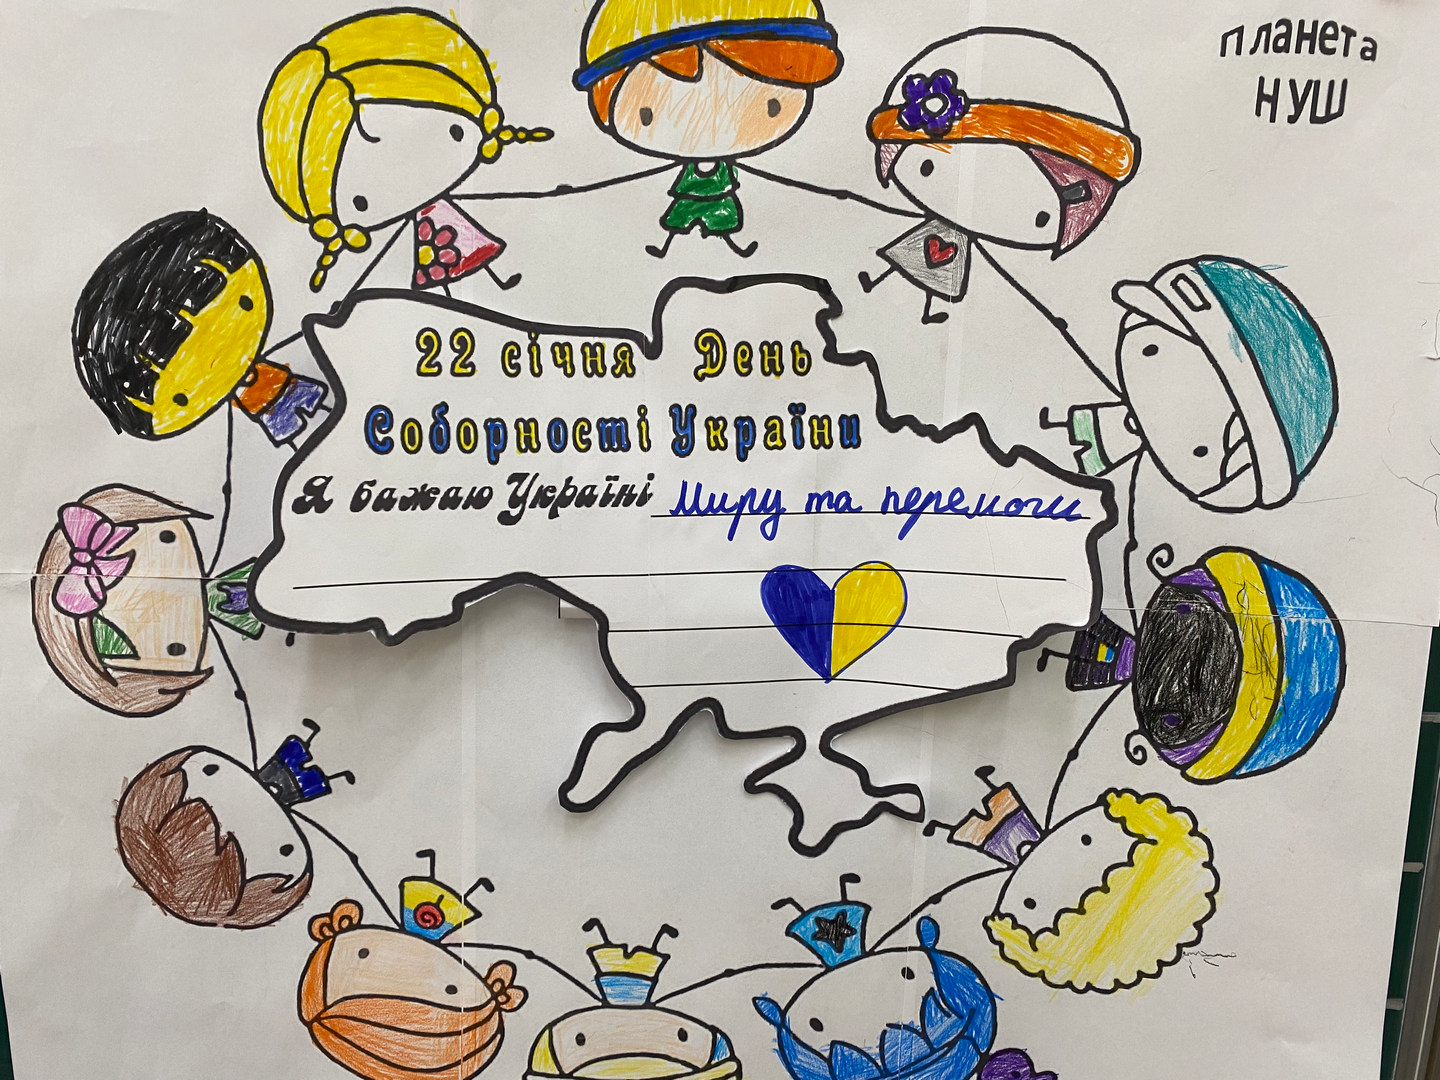 планета
НУШ
22 січня День
Соборності України
Я бажаю Україні Миру та перемоги